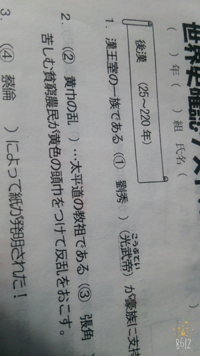 世界史
(　) 年 (　) 組 氏名 (
後漢 (25～220年)
1. 漢王室の一族である (① 劉秀 ) (光武帝) が豪族に支持
こうぶてい
2. (② 黄巾の乱 )…太平道の教祖である (③ 張角
苦しむ貧窮農民が黄色の頭巾をつけて反乱をおこす。
3. (④ 蔡倫 ) によって紙が発明された！